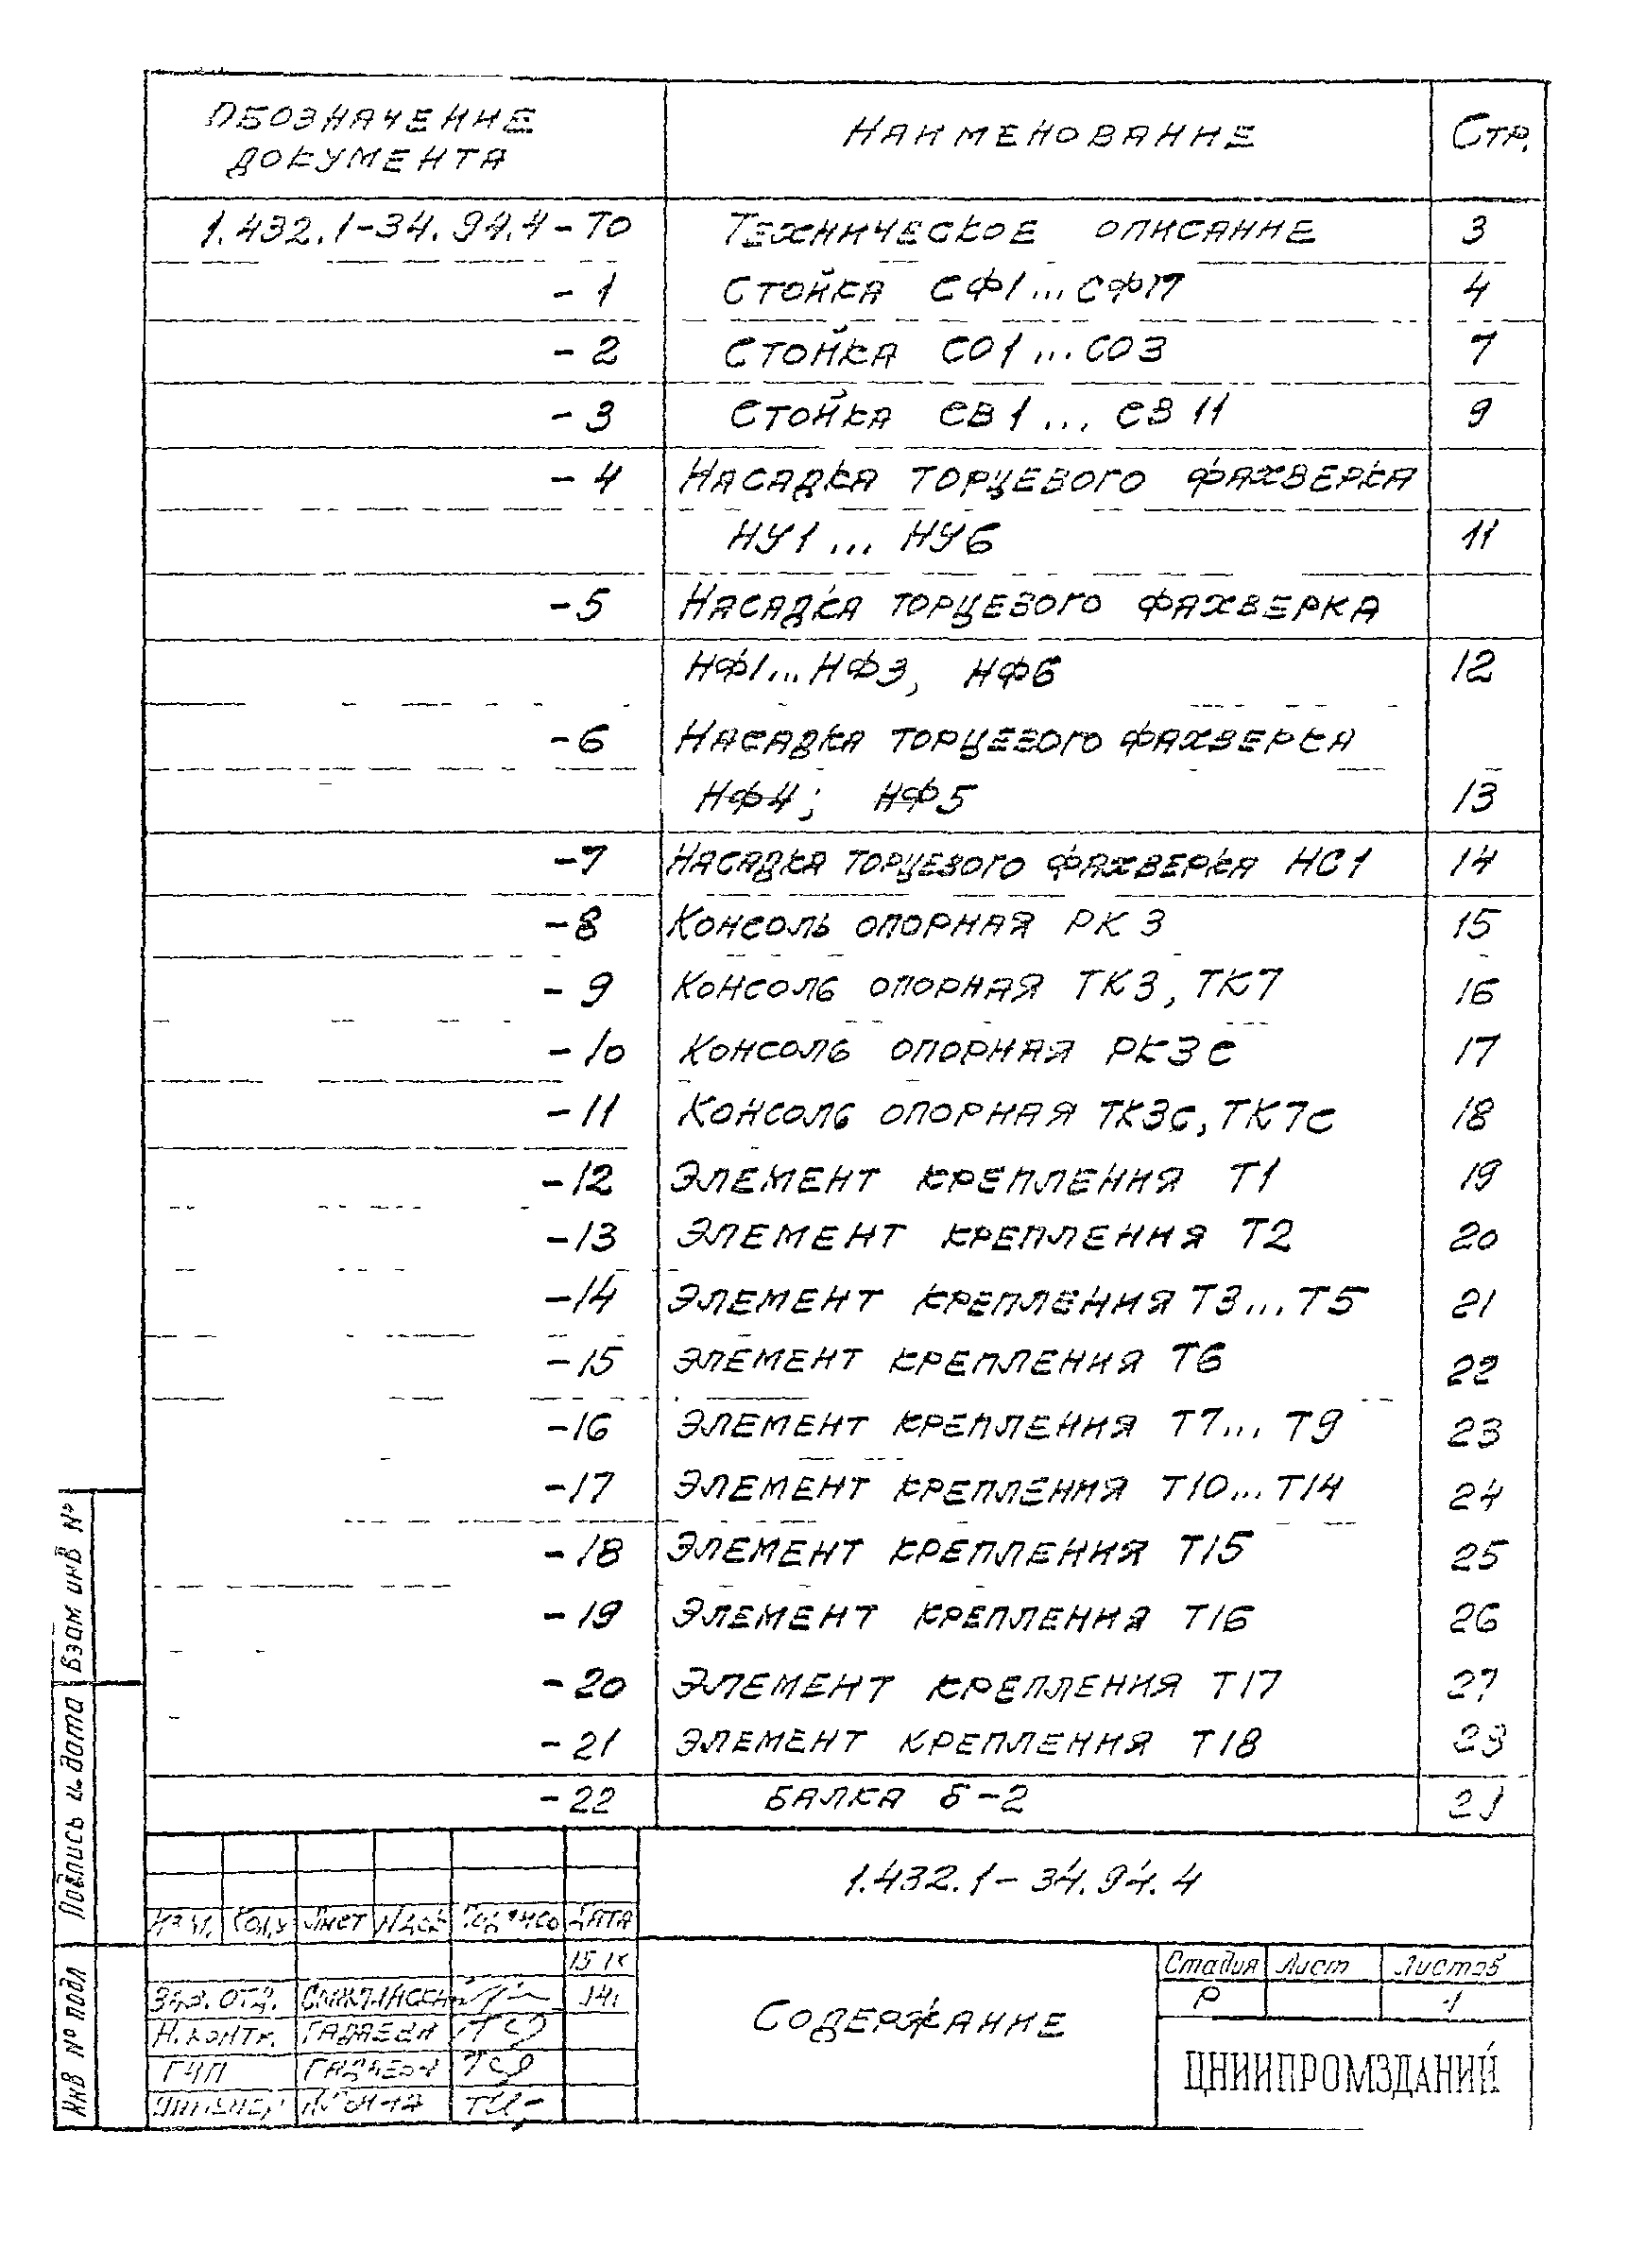 ОБОЗНАЧЕНИЕ ДОКУМЕНТА НАИМЕНОВАНИЕ СТР.
1.432.1-34.94.4-ТО ТЕХНИЧЕСКОЕ ОПИСАНИЕ 3
-1 СТОЙКА СФ1...СФ17 4
-2 СТОЙКА СО1...СО3 7
-3 СТОЙКА СВ1...СВ11 9
-4 НАСАДКА ТОРЦЕВОГО ФАХВЕРКА
НУ1...НУ6 11
-5 НАСАДКА ТОРЦЕВОГО ФАХВЕРКА
НФ1...НФ3, НФ6 12
-6 НАСАДКА ТОРЦЕВОГО ФАХВЕРКА
НФ4; НФ5 13
-7 НАСАДКА ТОРЦЕВОГО ФАХВЕРКА НС1 14
-8 КОНСОЛЬ ОПОРНАЯ РК3 15
-9 КОНСОЛЬ ОПОРНАЯ ТК3, ТК7 16
-10 КОНСОЛЬ ОПОРНАЯ РК3с 17
-11 КОНСОЛЬ ОПОРНАЯ ТК3с, ТК7с 18
-12 ЭЛЕМЕНТ КРЕПЛЕНИЯ Т1 19
-13 ЭЛЕМЕНТ КРЕПЛЕНИЯ Т2 20
-14 ЭЛЕМЕНТ КРЕПЛЕНИЯ Т3...Т5 21
-15 ЭЛЕМЕНТ КРЕПЛЕНИЯ Т6 22
-16 ЭЛЕМЕНТ КРЕПЛЕНИЯ Т7...Т9 23
-17 ЭЛЕМЕНТ КРЕПЛЕНИЯ Т10...Т14 24
-18 ЭЛЕМЕНТ КРЕПЛЕНИЯ Т15 25
-19 ЭЛЕМЕНТ КРЕПЛЕНИЯ Т16 26
-20 ЭЛЕМЕНТ КРЕПЛЕНИЯ Т17 27
-21 ЭЛЕМЕНТ КРЕПЛЕНИЯ Т18 28
-22 БАЛКА Б-2 29
1.432.1-34.94.4
ИЗМ. КОЛ.У ЛИСТ NДОК ПОДПИСЬ ДАТА
ЗАВ. ОТД.
Н. КОНТР.
ГИП
СОДЕРЖАНИЕ
Стадия Лист Листов
Р 1
ЦНИИПРОМЗДАНИЙ
Взам инв №
Подпись и дата
Инв № подл